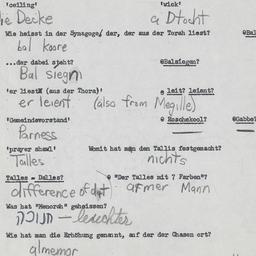 'ceiling' 'wick'
die Decke a Dtacht
Wie heisst in der Synagoge/ der, der aus der Torah liest? @Bal
bal koore
...der dabei steht? @Balsiegen?
Bal siegn
'er liest (aus der Thora)' @ leit? leient?
er leient (also from Megille)
'Gemeindevorstand' @ Roschekool? @Gabbe
Parness
'prayer shawl' Womit hat man den Tallis festgemacht?
Talles nichts
Talles = Dalles? @ "Der Talles mit 7 Farben"?
difference of dpt armer Mann
Was hat "Menorah" geheissen?
חנוכה — leuchter
Wie hat man die Erhöhung genannt, auf der der Chasen ort?
almemor